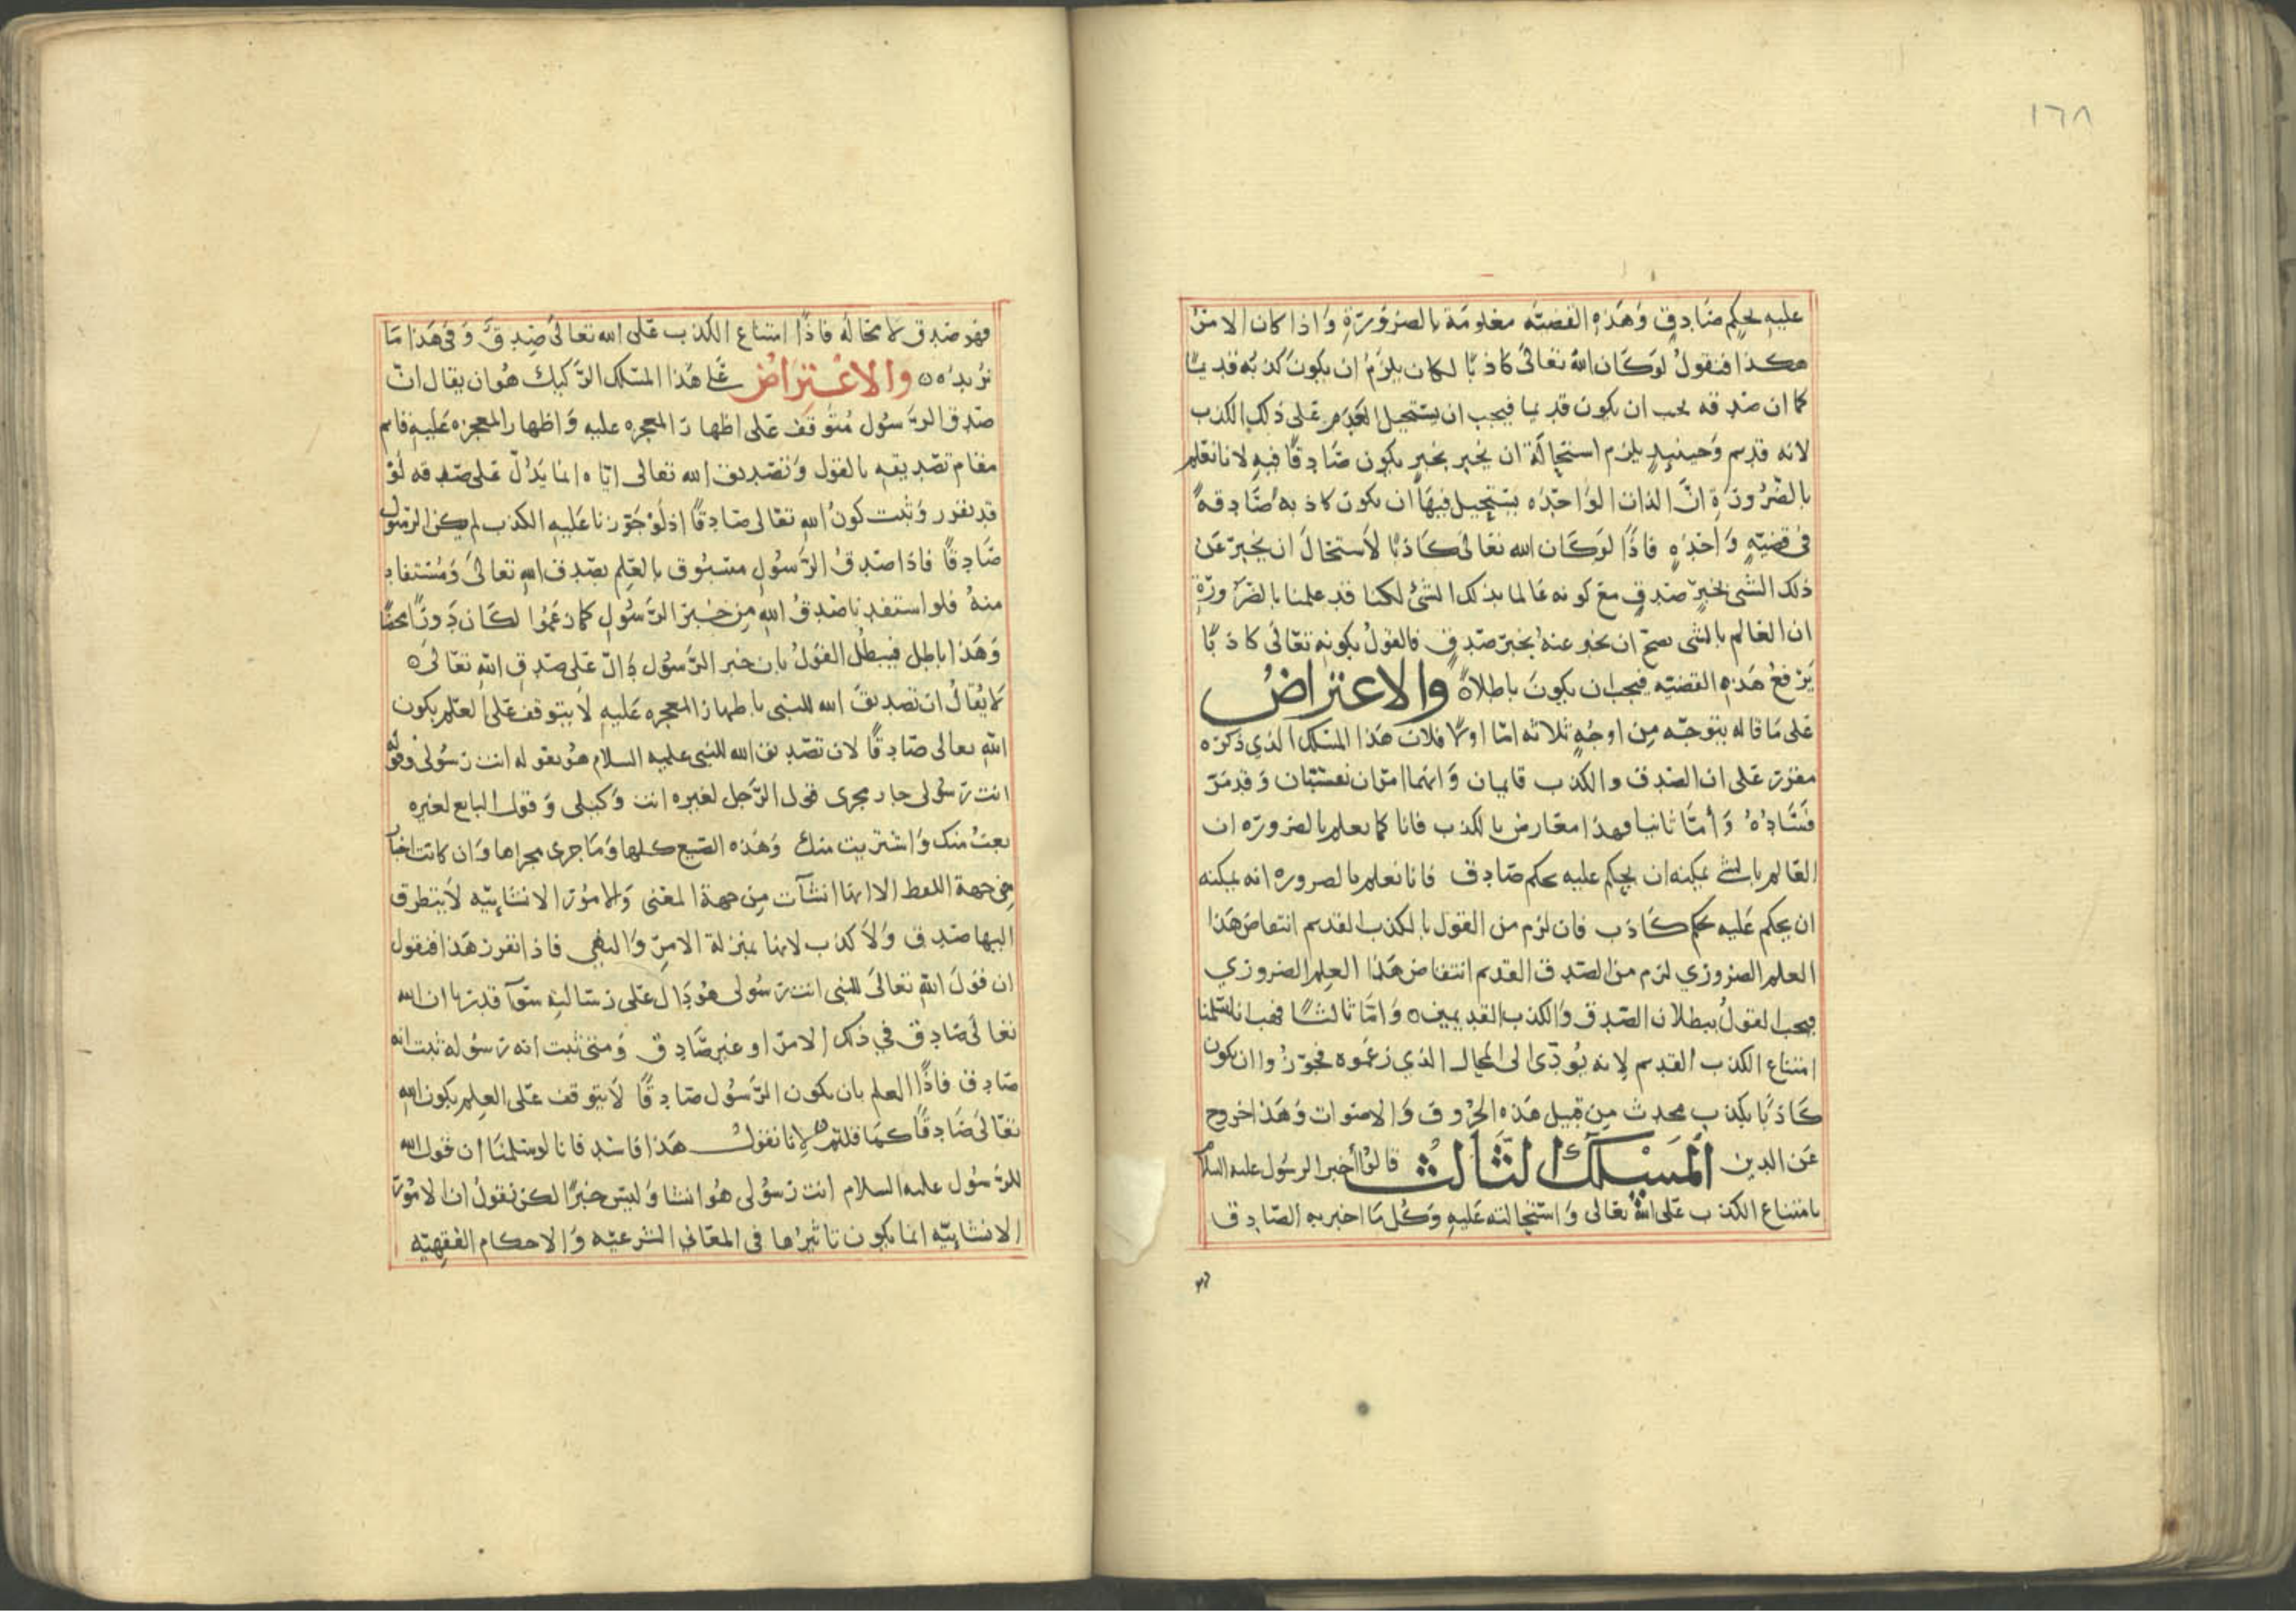 ١٦٨
عليه بحكم صادق وهذه القضيه معلومة بالضرورة واذا كان الامر
هكذا فنقول لو كان الله تعالى كاذبا لكان يلزم ان يكون كذبه قديما
كما ان صدقه يجب ان يكون قديما فيجب ان يستحيل العدم على ذلك الكذب
لانه قديم وحينيذ يلزم استحالة ان يخبر بخبر يكون صادقا فيه لانا نعلم
بالضرورة ان الذات الواحده يستحيل فيها ان يكون كاذبه صادقة
فى قضيه واحده فاذا لو كان الله تعالى كاذبا لاستحال ان يخبر عن
ذلك الشى بخبر صدق مع كونه عالما بذلك الشئ لكنا قد علمنا بالضرورة
ان العالم بالشى يصح ان يخبر عنه بخبر صدق فالقول بكونه تعالى كاذبا
يرفع هذه القضيه فيجب ان يكون باطلا ه والاعتراض
على ما قاله يتوجه من اوجه ثلاثه اما اولا فلان هذا المسلك الذي ذكره
مقرر على ان الصدق والكذب قايمان وانهما امران نفسيان وقد مر
فساده واما ثانيا فهذا معارض بالكذب فانا كما نعلم بالضروره ان
العالم بالشى يمكنه ان يحكم عليه بحكم صادق فانا نعلم بالضروره انه يمكنه
ان يحكم عليه بحكم كاذب فان لزم من القول بالكذب القديم انتقاض هذا
العلم الضروري لزم من الصدق القديم انتقاض هذا العلم الضروري
فيجب القول ببطلان الصدق والكذب القديمين ه واما ثالثا فهب انا سلمنا
امتناع الكذب القديم لانه يؤدى الى المحال الذي زعموه فجوزوا ان يكون
كاذبا بكذب محدث من قبيل هذه الحروف والاصوات وهذا خروج
عن الدين المسلك الثالث قالوا أخبر الرسول عليه السلام
بامتناع الكذب على الله تعالى واستحالته عليه وكل ما اخبر به الصادق
فهو صدق لا محاله فاذا امتناع الكذب على الله تعالى صدق وفى هذا ما
نريده ه والاعتراض على هذا المسلك الركيك هو ان يقال ان
صدق الرسول متوقف على اظهار المعجزه عليه واظهار المعجزه عليه قايم
مقام تصديقه بالقول وتصديق الله تعالى اياه انما يدل على صدقه لو
قد تقرر وثبت كون الله تعالى صادقا اذ لو جوزنا عليه الكذب لم يكن الرسول
صادقا فاذا صدق الرسول مسبوق بالعلم بصدق الله تعالى ومستفاد
منه فلو استفدنا صدق الله من خبر الرسول كما زعموا لكان دورا محضا
وهذا باطل فيبطل القول بان خبر الرسول دال على صدق الله تعالى ه
لا يقال ان تصديق الله للنبى باظهار المعجزه عليه لا يتوقف على العلم بكون
الله تعالى صادقا لان تصديق الله للنبى عليه السلام هو بقوله انت رسولى وقوله
انت رسولى جار مجرى قول الرجل لغيره انت وكيلى وقول البايع لغيره
بعت منك واشتريت منك وهذه الصيغ كلها وما جرى مجراها وان كانت اخبارا
من جهة اللفظ الا انها انشآت من جهة المعنى والامور الانشاييه لا يتطرق
اليها صدق ولا كذب لانها بمنزلة الامر والنهي فاذا تقرر هذا فنقول
ان قول الله تعالى للنبى انت رسولى هو دال على رسالته سوآ قدرنا ان الله
تعالى صادق في ذلك الامر او غير صادق ومتى ثبت انه رسوله ثبت انه
صادق فاذا العلم بان يكون الرسول صادقا لا يتوقف على العلم بكون الله
تعالى صادقا كما قلتم ه لانا نقول هذا فاسد فانا لو سلمنا ان قول الله
للرسول عليه السلام انت رسولى هو انشا وليس خبرا لكن نقول ان الامور
الانشاييه انما يكون تاثيرها فى المعانى الشرعيه والاحكام الفقهيه